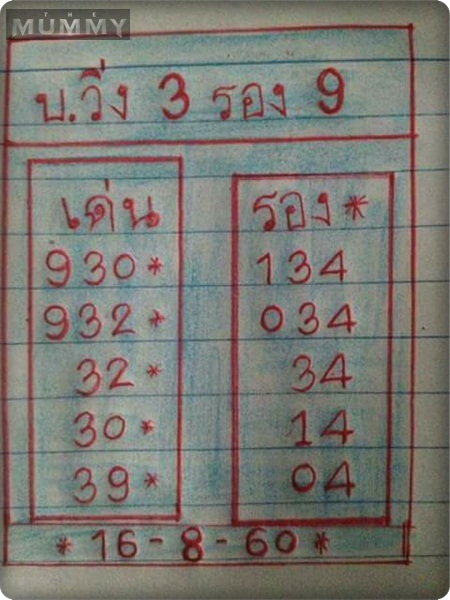 THE
MUMMY
บ.วิ่ง 3 รอง 9
เด่น
930*
932*
32*
30*
39*
รอง*
134
034
34
14
04
* 16-8-60 *